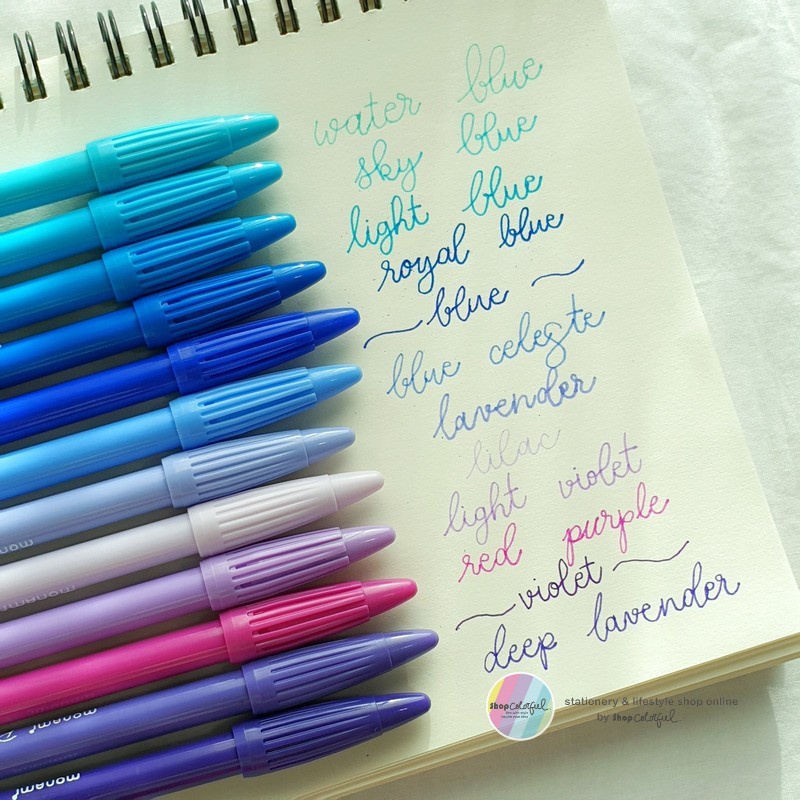 water blue
sky blue
light blue
royal blue
blue
blue celeste
lavender
lilac
light violet
red purple
violet
deep lavender
monami
monami
monami
monami
shop Colorful
stationery & lifestyle shop online
by shop Colorful